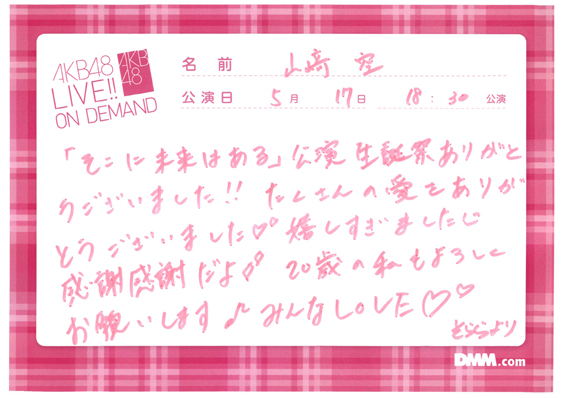 AKB48
LIVE!!
ON DEMAND
AKB
48
名前 山﨑 空
公演日 5月 17日 18:30 公演
「そこに未来はある」公演 生誕祭ありがと
うございました!! たくさんの愛をありが
とうございました♡ 嬉しすぎました
感謝感謝だよ 20歳の私もよろしく
お願いします♪ みんなLOVE♡♡
そらより
DMM.com